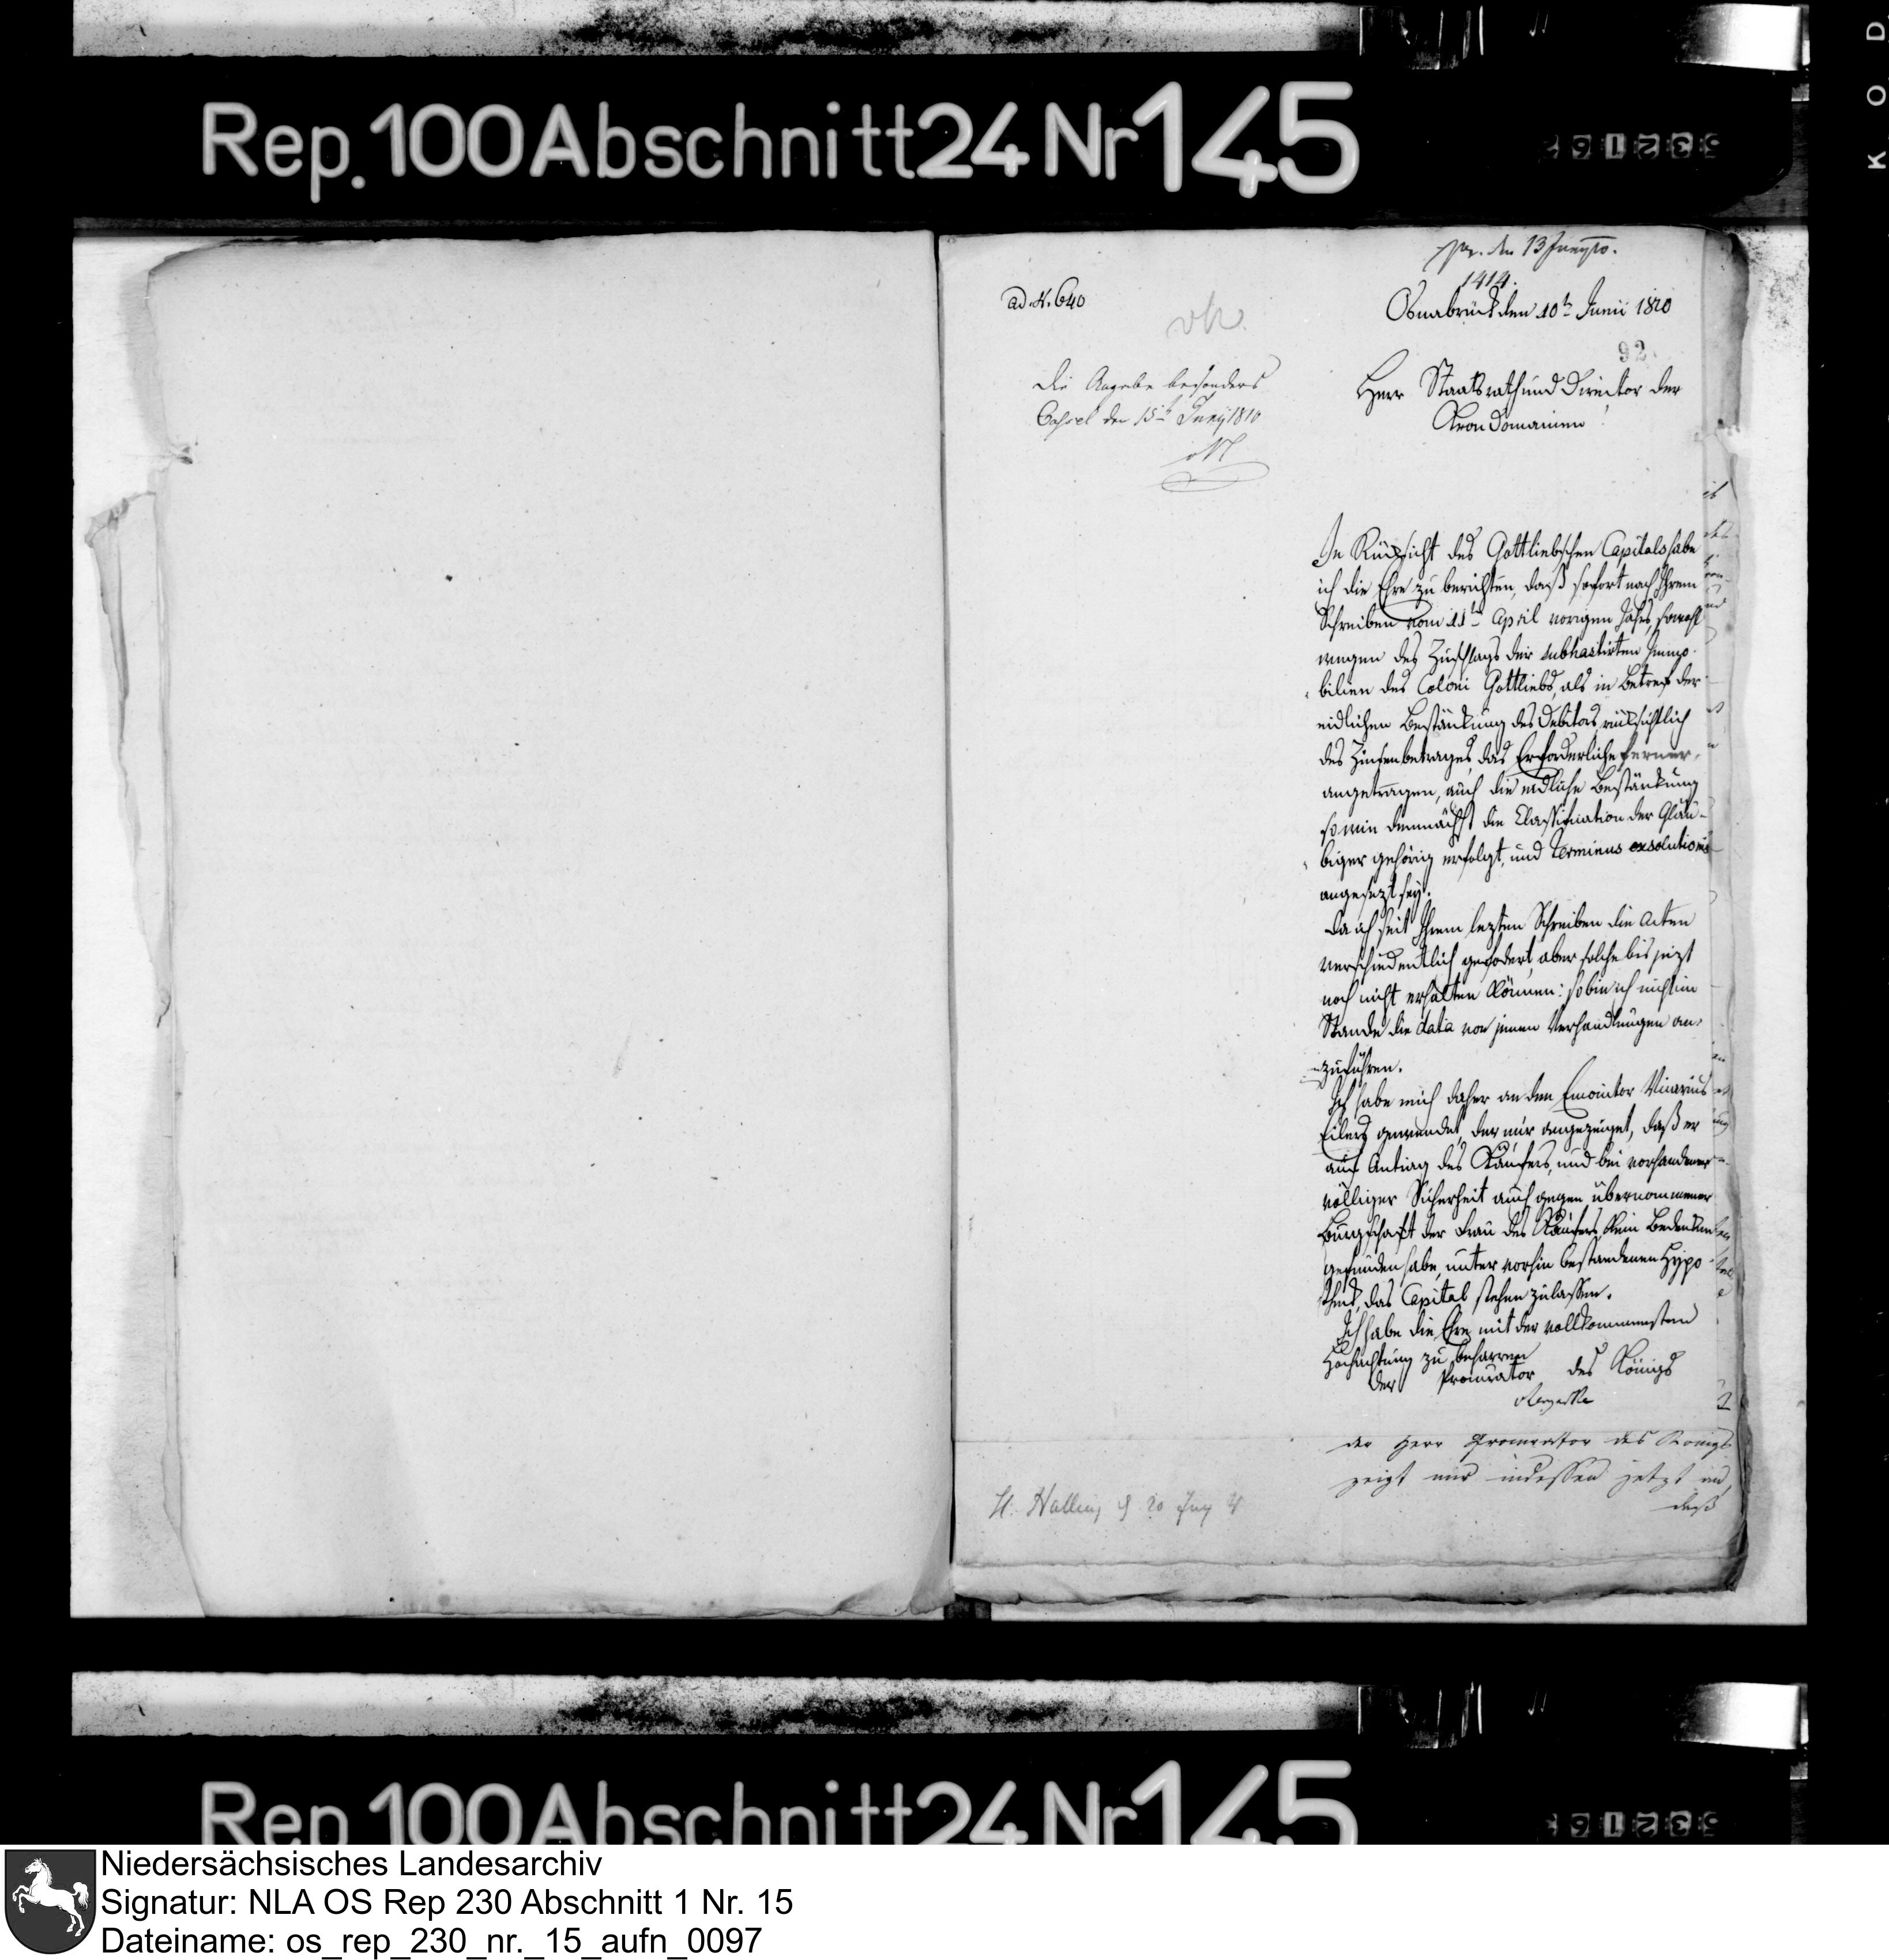 Rep. 100 Abschnitt 24 Nr 145
pr. den 13 Juny 10.
1414.
ad. N. 640
Osnabrück den 10t Junii 1810
92.
die Angabe besonders
Cassel den 15t Juny 1810
Herr Staatsrath und Director der
Kron Domainen!
In Rücksicht des Gottliebschen Capitals habe
ich die Ehre zu berichten, daß sofort nach Ihrem
Schreiben vom 11t April vorigen Jahrs, sowohl
wegen des Zuschlags der subhastirten Immo-
bilien des Coloni Gottliebs, als in Betref der
eidlichen Bestärkung des Debitors, rücksichtlich
des Zinsenbetrages, das Erforderliche ferner
angetragen, auch die eidliche Bestärkung
so wie demnächst die Classification der Gläu-
biger gehörig erfolgt, und Terminus exsolutionis
angesezt sey.
Da ich seit Ihrem lezten Schreiben die Acten
verschiedentlich gefodert, aber solche bis jezt
noch nicht erhalten können: so bin ich nicht im
Stande die data von jenen Verhandlungen an-
zuführen.
Ich habe mich daher an den Emonitor Vicarius
Eilers gewendet, der mir angezeiget, daß er
auf Antrag des Käufers, und bei vorhandener
völliger Sicherheit auch gegen übernommener
Bürgschaft der Frau des Käufers kein Bedenken
gefunden habe, unter vorhin bestandenen Hypo-
thek, das Capital stehen zu lassen.
Ich habe die Ehre mit der vollkommensten
Hochachtung zu beharren
Der Procurator des Königs
der Herr Procurator des Königs
zeigt mir indessen jetzt an,
daß
Rep 100 Abschnitt 24 Nr 145
Niedersächsisches Landesarchiv
Signatur: NLA OS Rep 230 Abschnitt 1 Nr. 15
Dateiname: os_rep_230_nr._15_aufn_0097